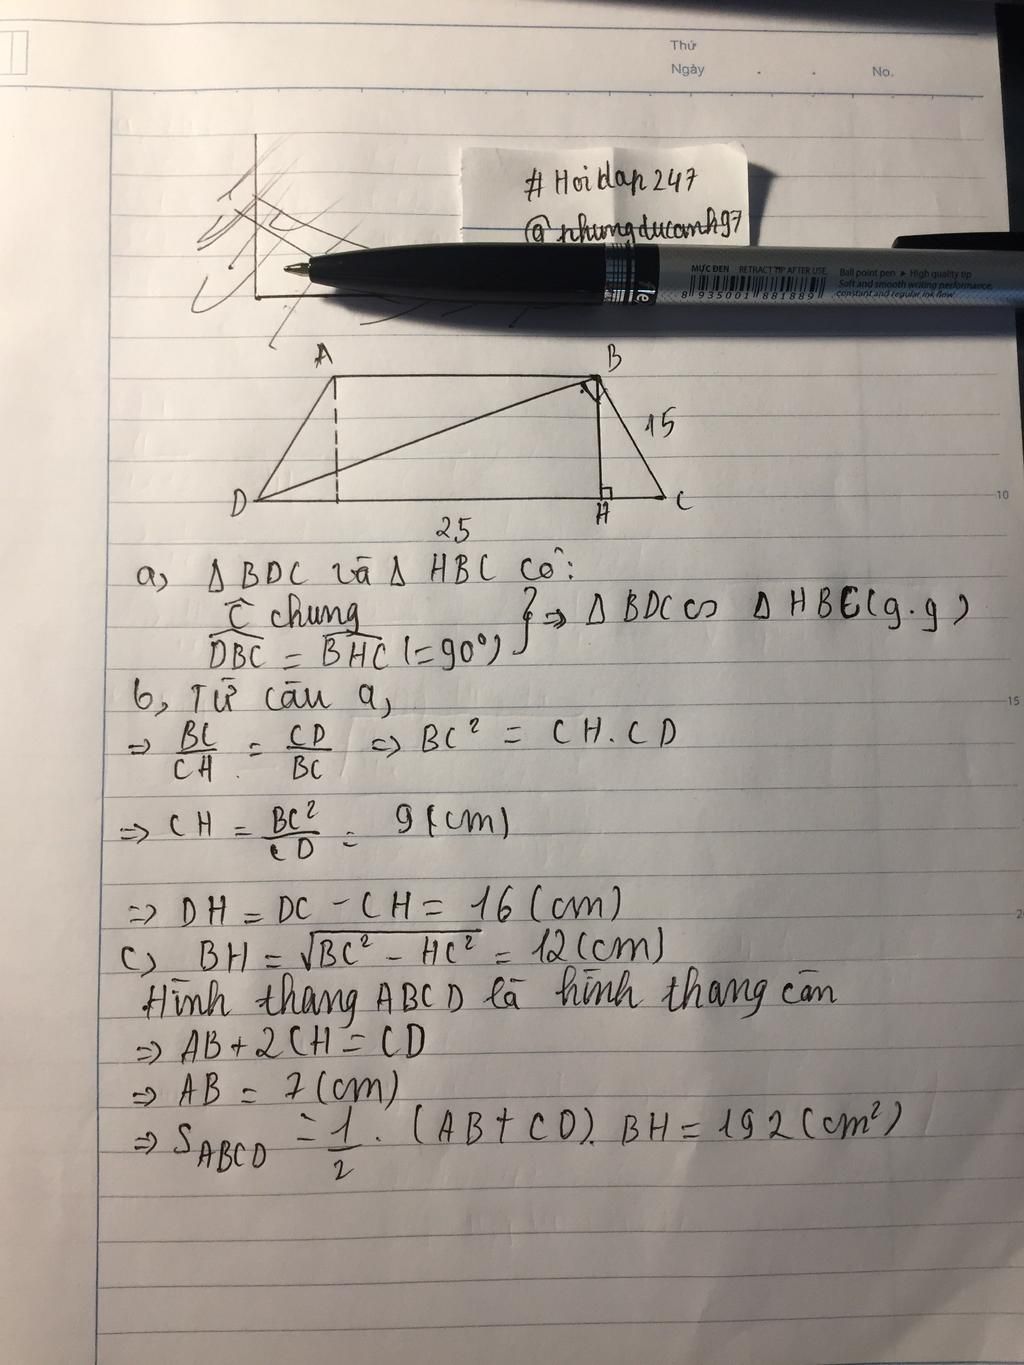 Thứ
Ngày . . No.
#Hoidap247
@nhungducanh97
MỰC ĐEN RETRACT TIP AFTER USE.
8 935001 881889
Ball point pen ▸ High quality tip
Soft and smooth writing performance,
constant and regular ink flow
A B
15
D H C
10
25
a, Δ BDC và Δ HBC có:
Ĉ chung
DBC = BHC (=90°) } => Δ BDC ∽ Δ HBC (g.g)
b, Từ câu a,
15
=> BC/CH = CD/BC => BC² = CH.CD
=> CH = BC²/CD = 9 (cm)
=> DH = DC - CH = 16 (cm)
c, BH = √BC² - HC² = 12 (cm)
Hình thang ABCD là hình thang cân
=> AB + 2CH = CD
=> AB = 7 (cm)
=> S ABCD = 1/2 . (AB + CD). BH = 192 (cm²)